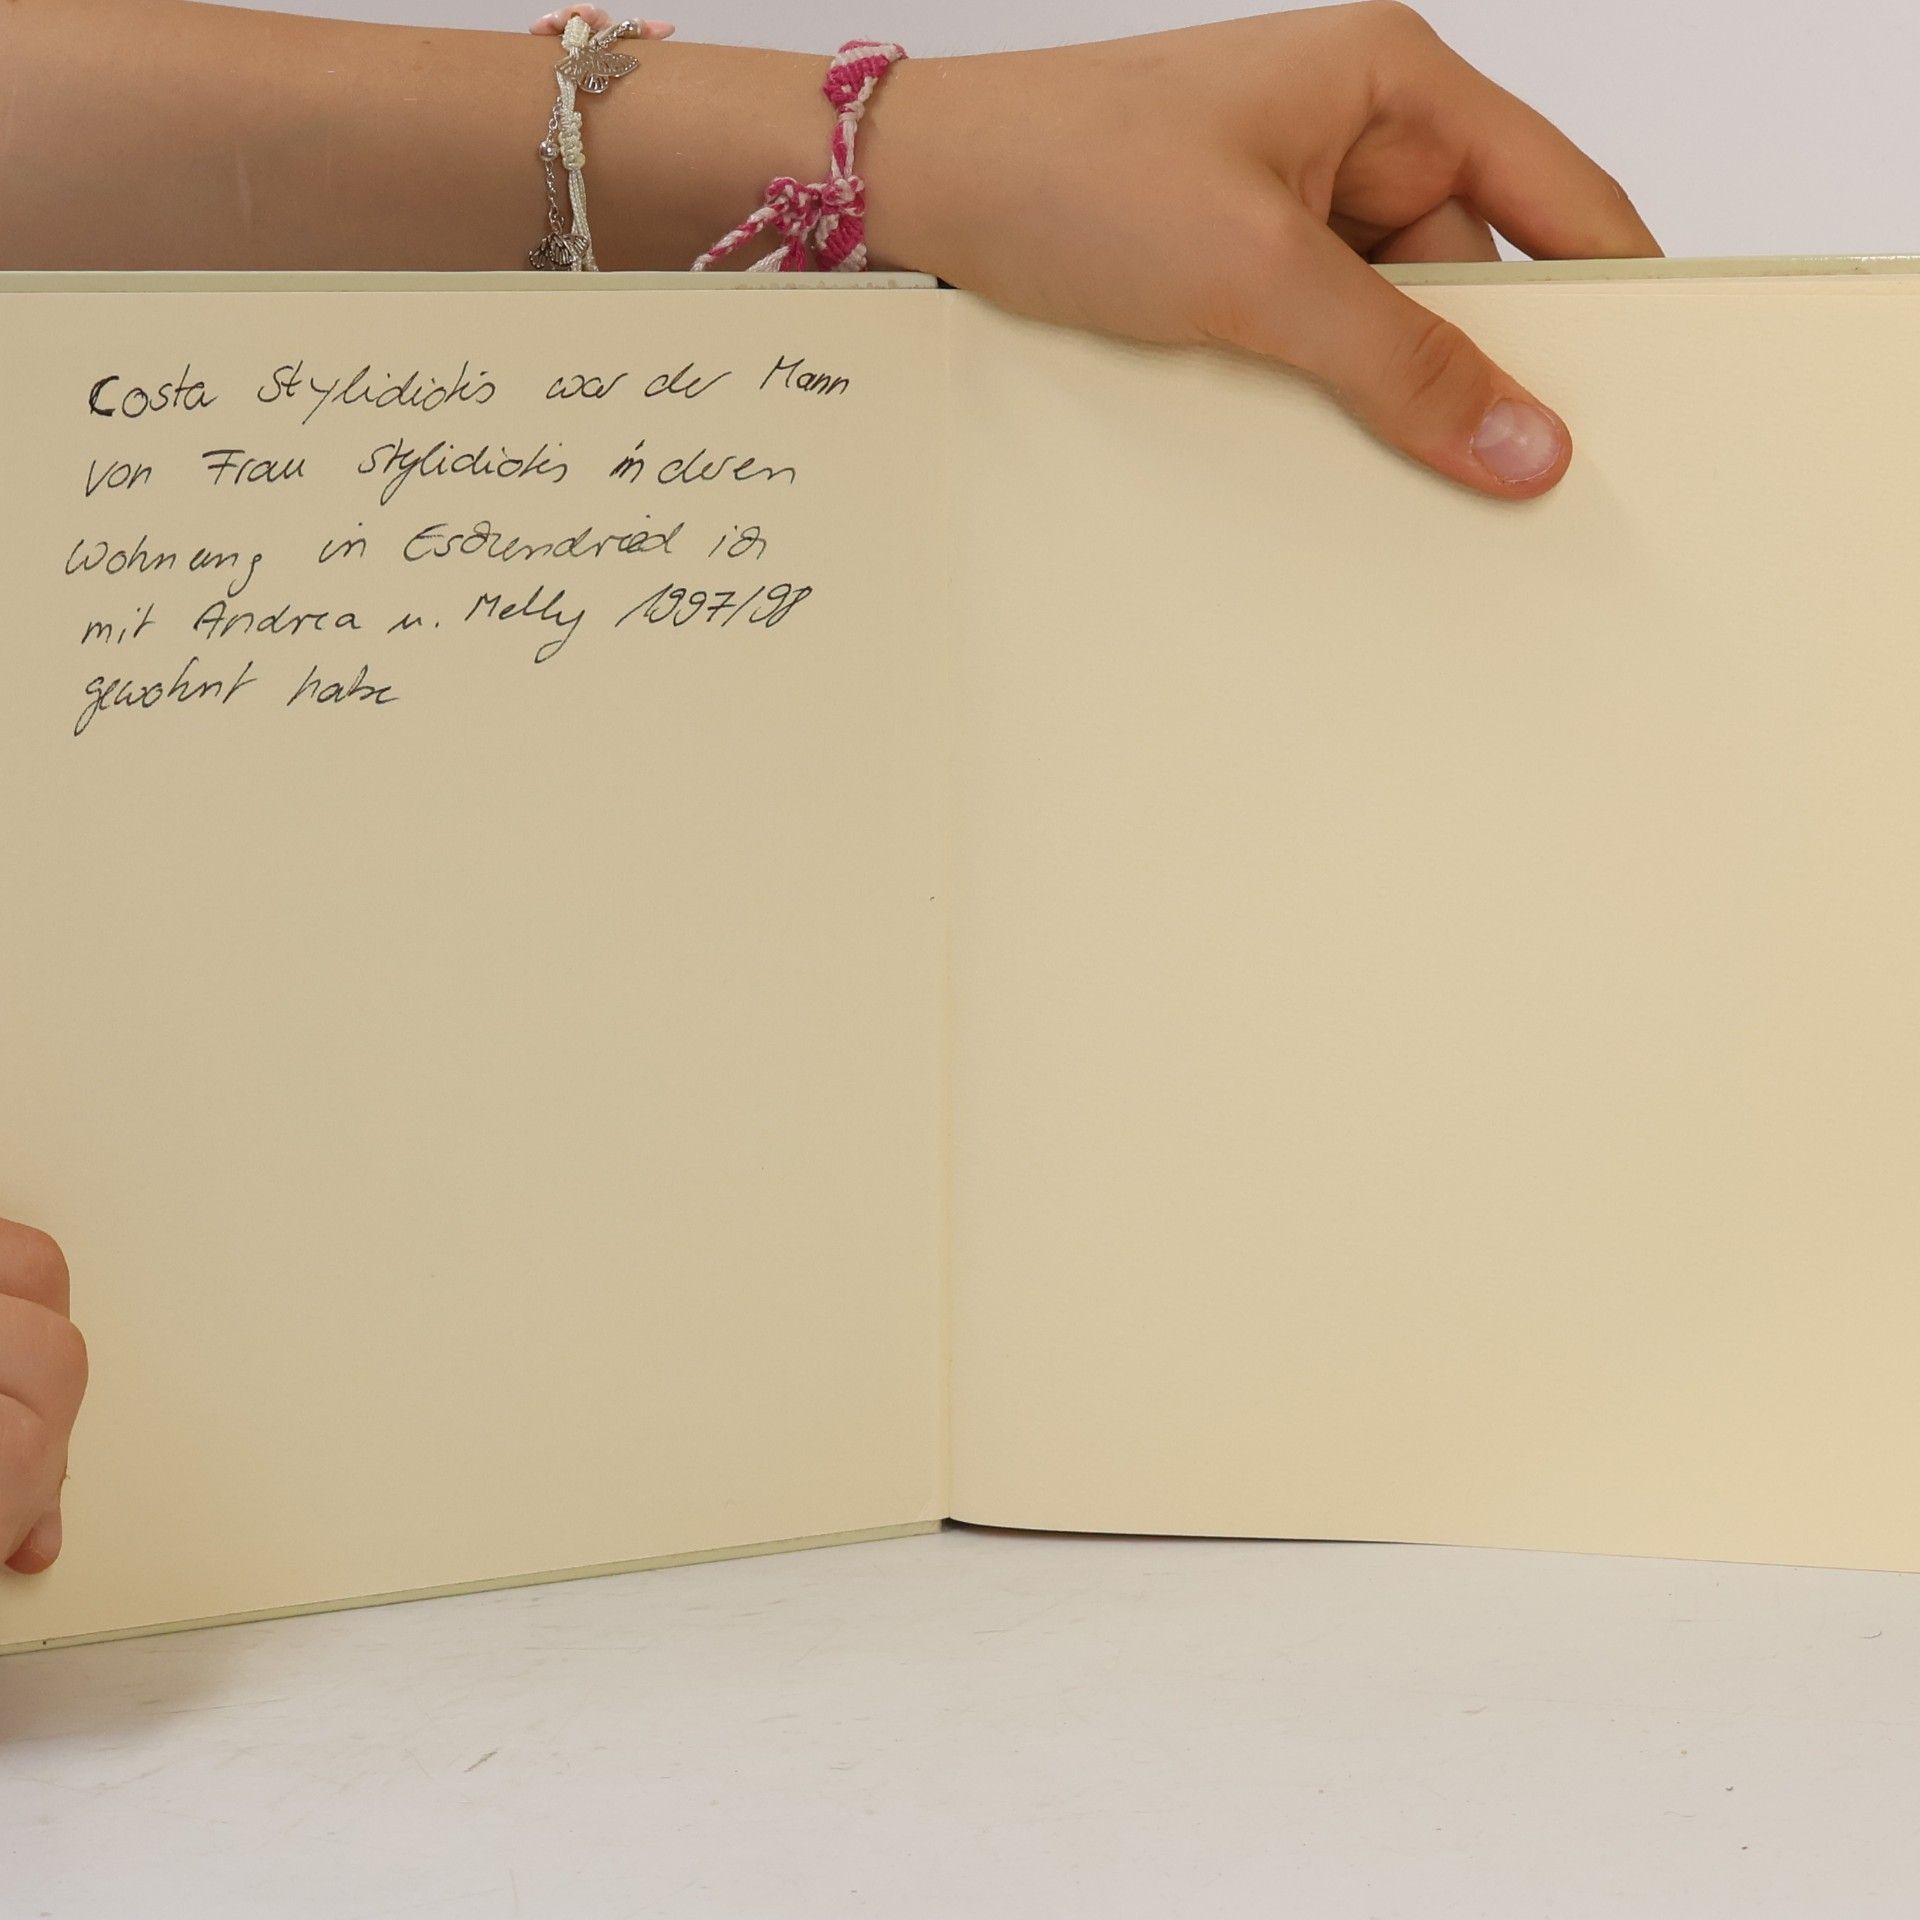 Costa Stylidiotis war der Mann
von Frau Stylidiotis in deren
Wohnung in Eschenried ich
mit Andrea u. Melly 1997/98
gewohnt habe